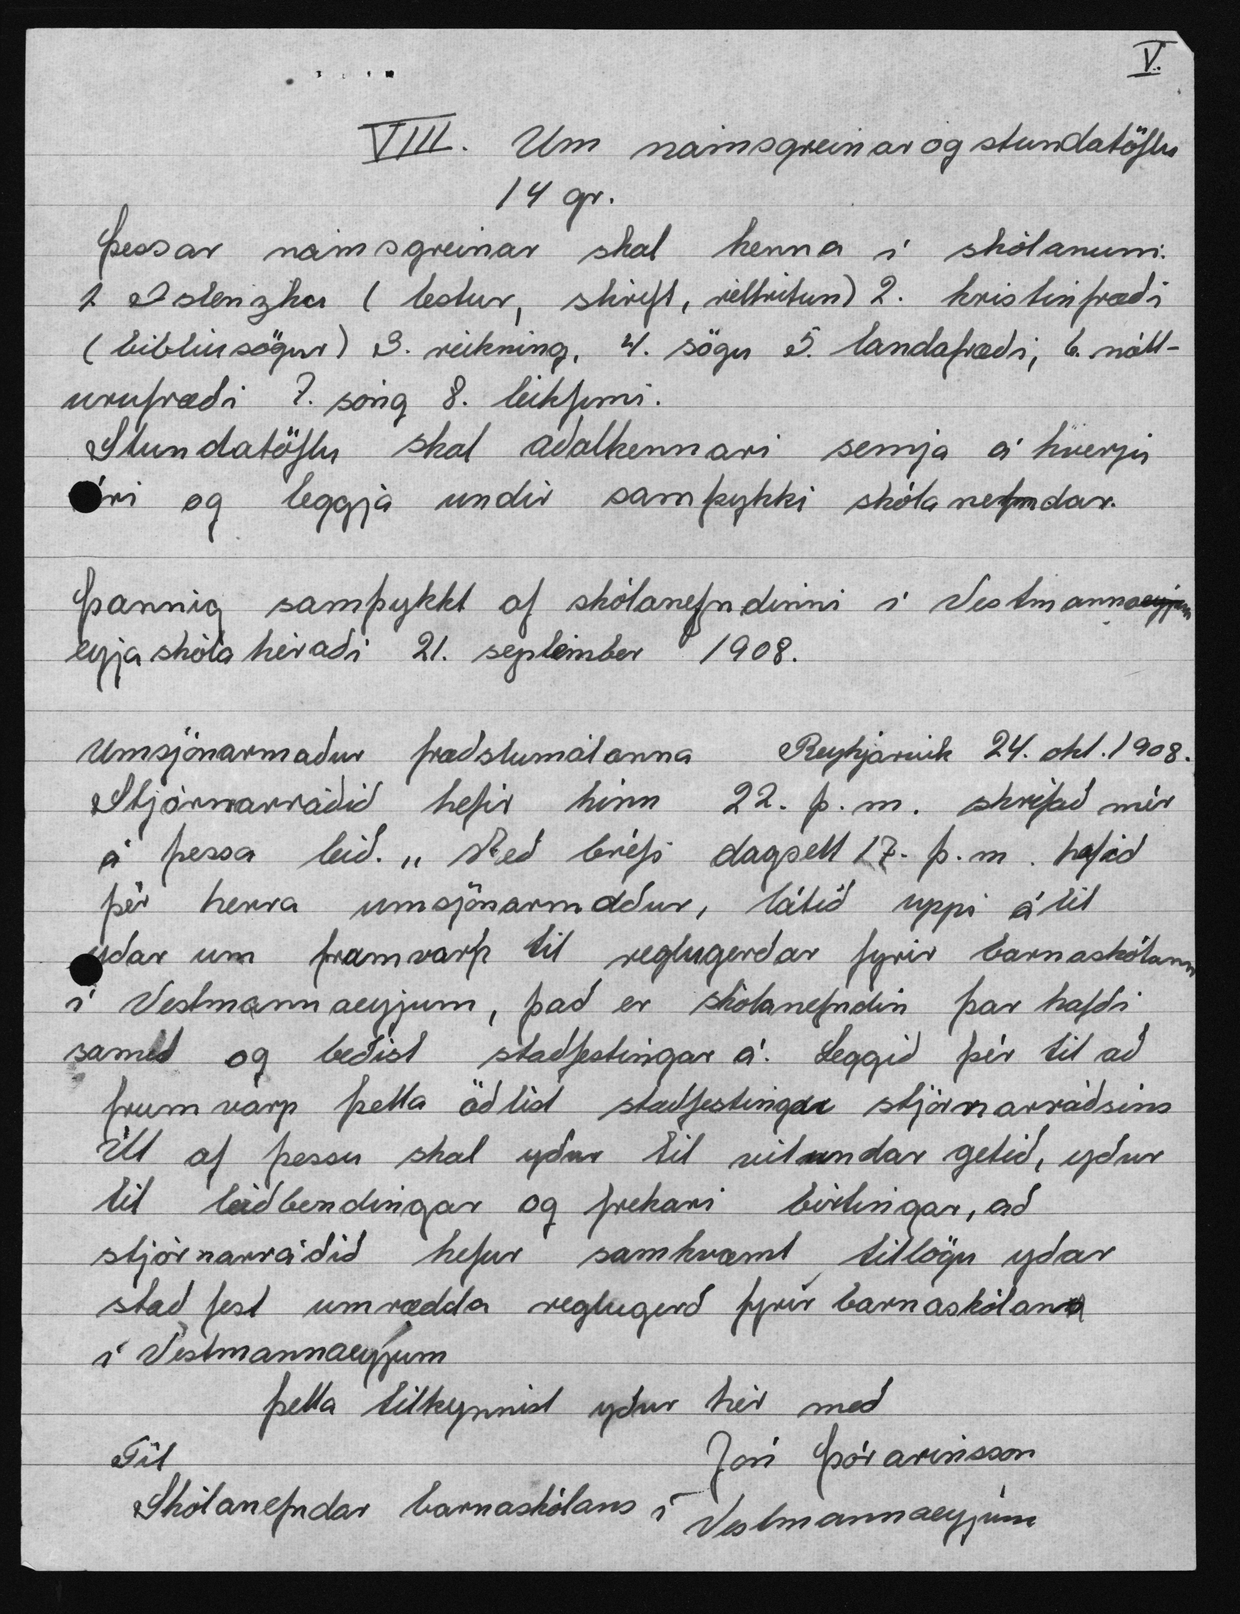 V.
VIII. Um námsgreinar og stundatöflu
14 gr.
Þessar námsgreinar skal kenna í skólanum:
1 Íslenzka (lestur, skrift, réttritun) 2. kristinfræði
(biblíusögur) 3. reikning, 4. sögu 5. landafræði, 6. nátt-
urufræði 7. söng 8. leikfimi.
Stundatöflu skal aðalkennari semja á hverju
ári og leggja undir samþykki skólanefndar.
Þannig samþykkt af skólanefndinni í Vestmanna
eyjaskólahéraði 21. september 1908.
Umsjónarmaður fræðslumálanna Reykjavík 24. okt. 1908.
Stjórnarráðið hefir hinn 22. þ.m. skrifað mér
á þessa leið. „Með bréfi dagsett 17. þ.m. hafið
þér herra umsjónarmaður, látið uppi álit
yðar um framvarp til reglugerðar fyrir barnaskólann
í Vestmannaeyjum, það er skólanefndin þar hafði
samið og beðist staðfestingar á. Leggið þér til að
frumvarp þetta öðlist staðfestingar stjórnarráðsins
Út af þessu skal yður til vitundar getið, yður
til leiðbendingar og frekari birtingar, að
stjórnarráðið hefur samkvæmt tillögu yðar
staðfest umrædda reglugerð fyrir barnaskólann
í Vestmannaeyjum
Þetta tilkynnist yður hér með
Til Jón Þórarinsson
Skólanefndar barnaskólans í Vestmannaeyjum